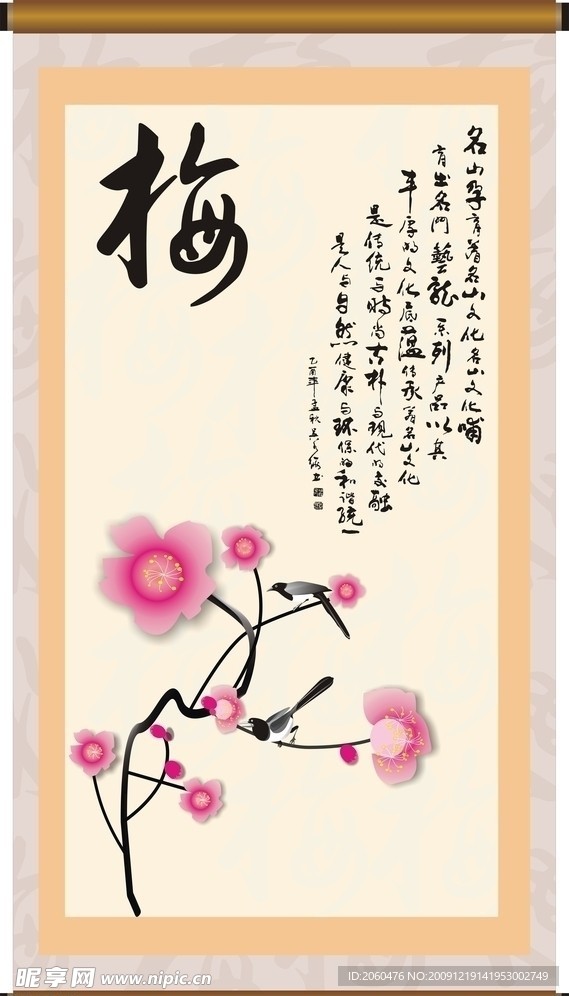 梅
名山孕育着名山文化名山文化哺
育出名门艺龙系列产品以其
丰厚的文化底蕴传承着名山文化
是传统与时尚古朴与现代的交融
是人与自然健康与环保的和谐统一
乙酉年孟秋
昵享网 www.nipic.cn
ID:2060476 NO:20091219141953002749